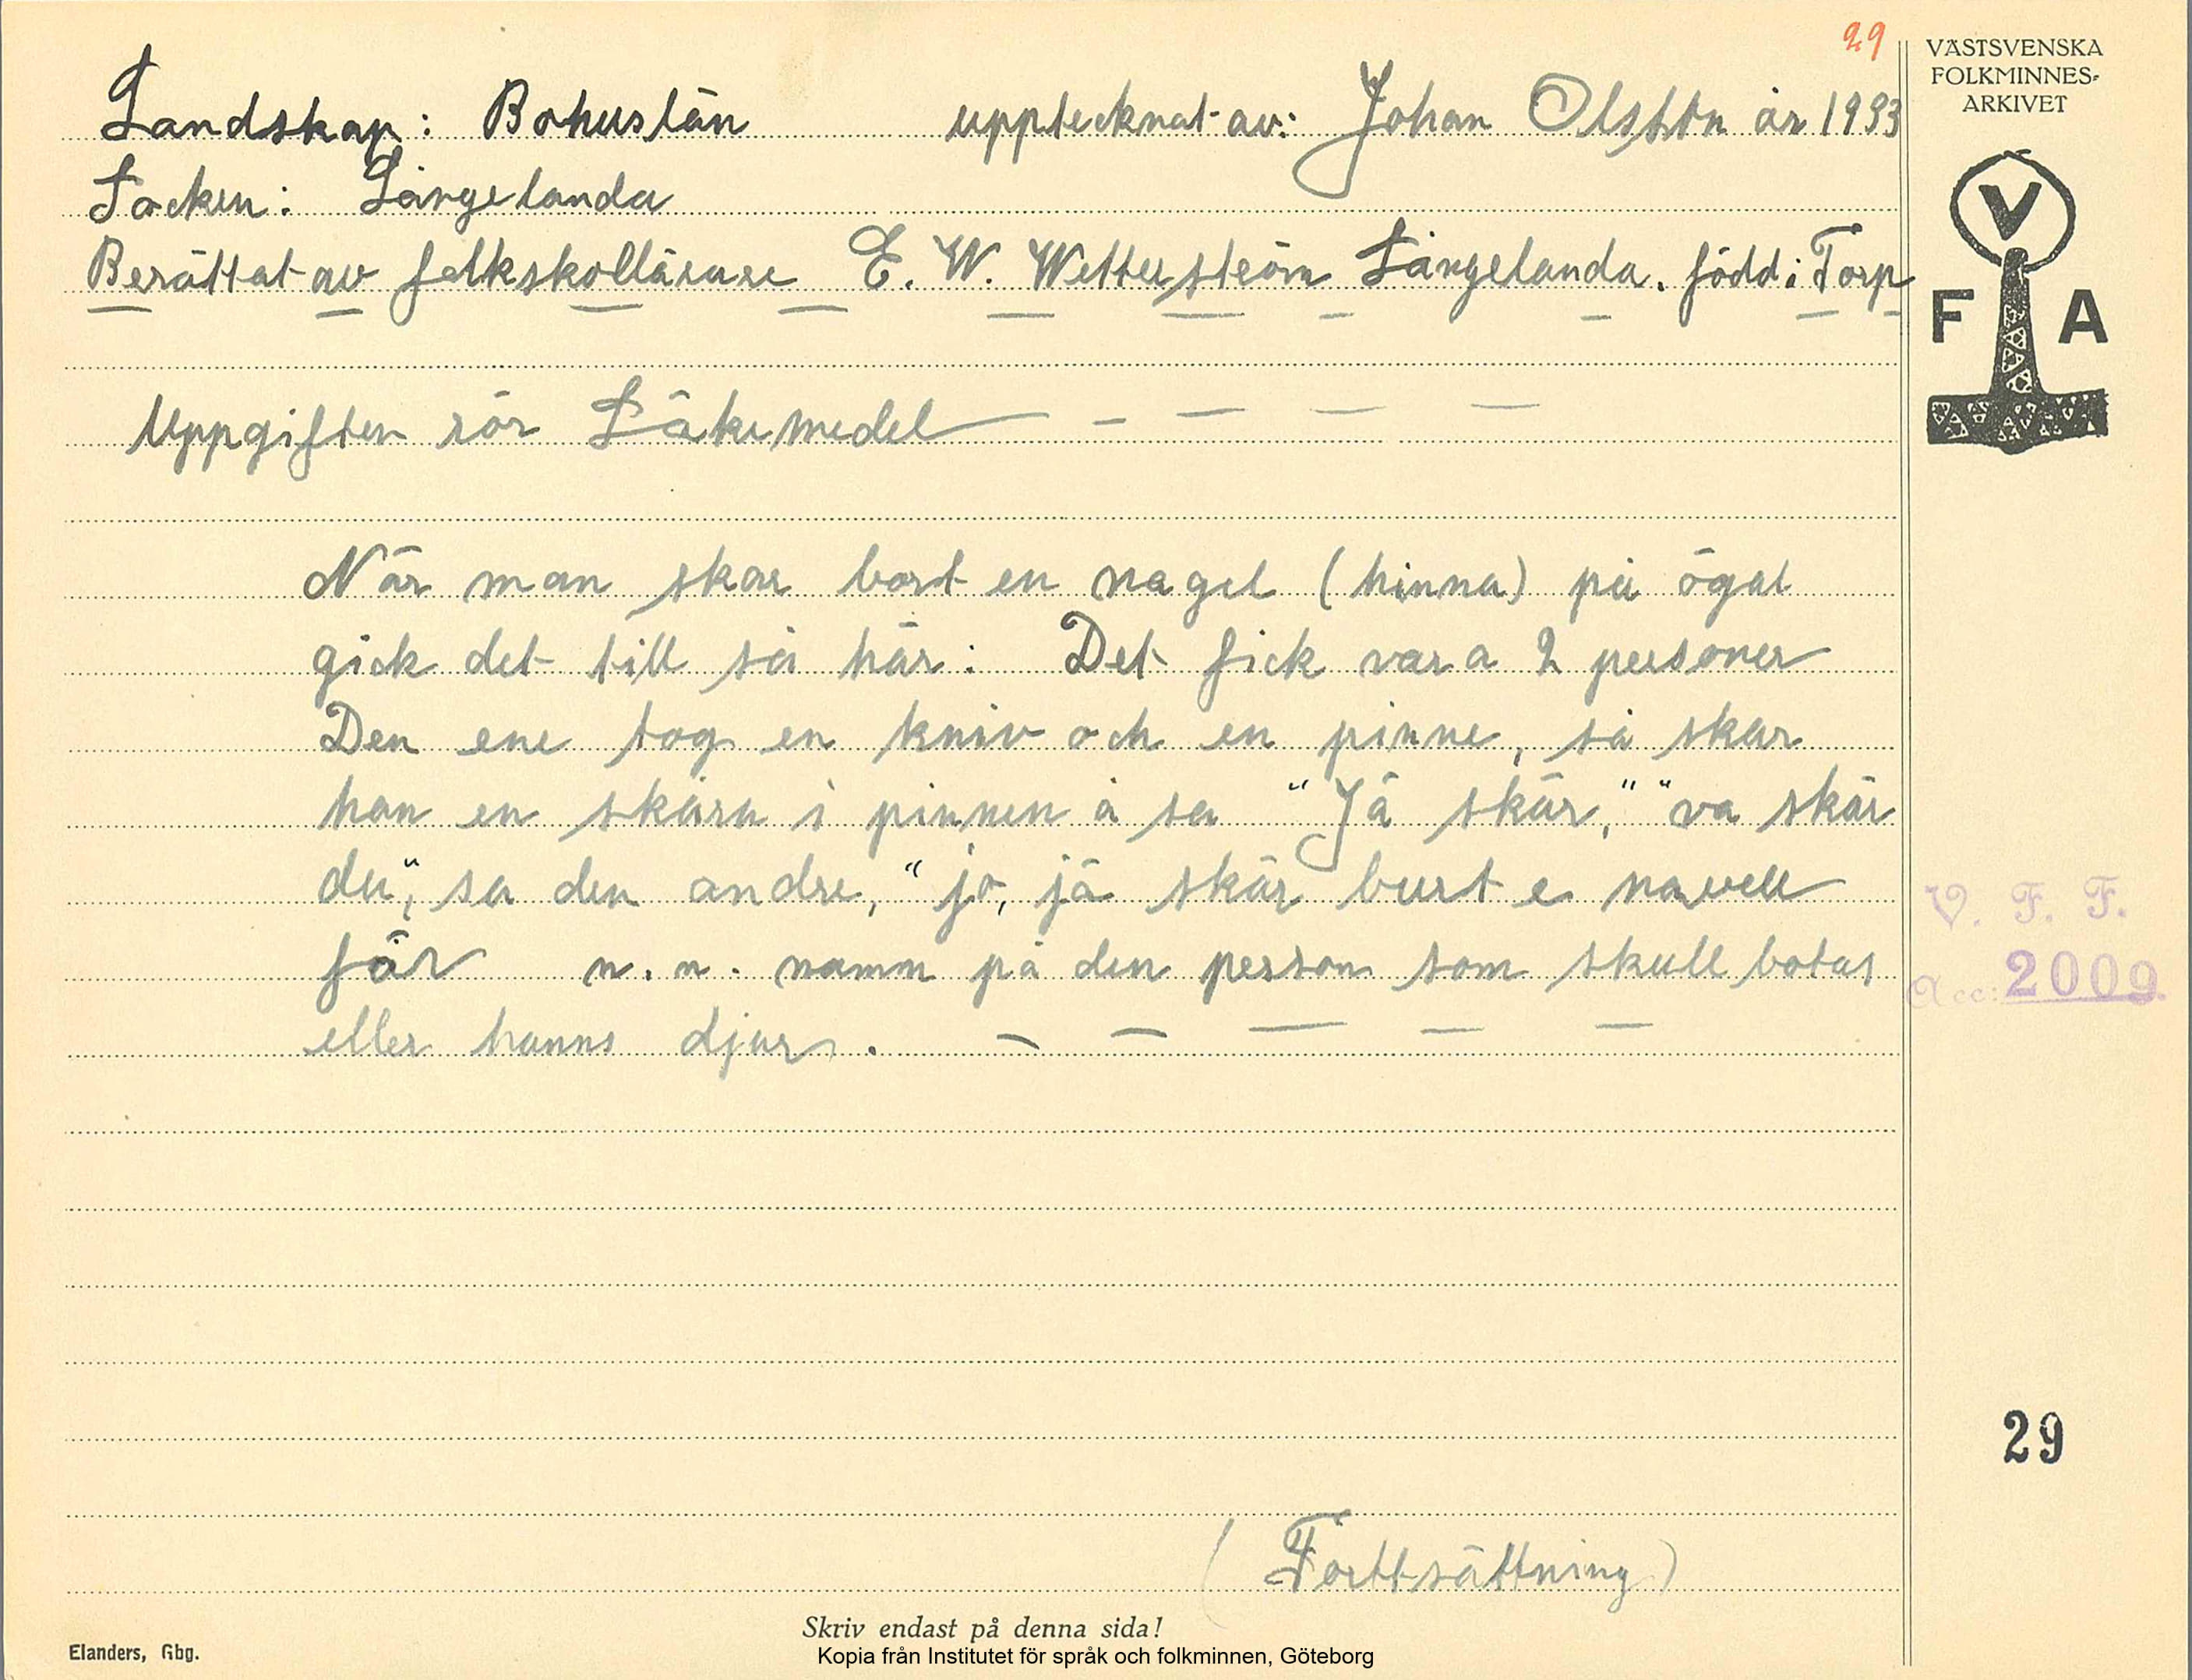 29
VÄSTSVENSKA
FOLKMINNES-
ARKIVET
Landskap: Bohuslän upptecknat av: Johan Olsson år 1933
Socken: Långelanda
Berättat av folkskollärare E. W. Wetterström Långelanda. född i Torp
V
F A
Uppgiften rör Läkemedel — — — —
När man skar bort en nagel (hinna) på ögat
gick det till så här: Det fick vara 2 personer
Den ene tog en kniv och en pinne, så skar
han en skåra i pinnen å sa "Jä skär," "va skär
du", sa den andre, "jo, jä skär burt e navell
får n.n. namm på den person som skull botas
eller hanns djur. — — — — —
V. F. F.
Acc: 2009.
29
(Forttsättning)
Skriv endast på denna sida!
Elanders, Gbg.
Kopia från Institutet för språk och folkminnen, Göteborg